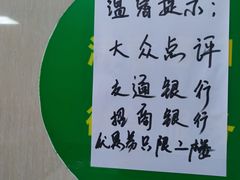 温馨提示：
大众点评
交通银行
招商银行
优惠券只限二楼